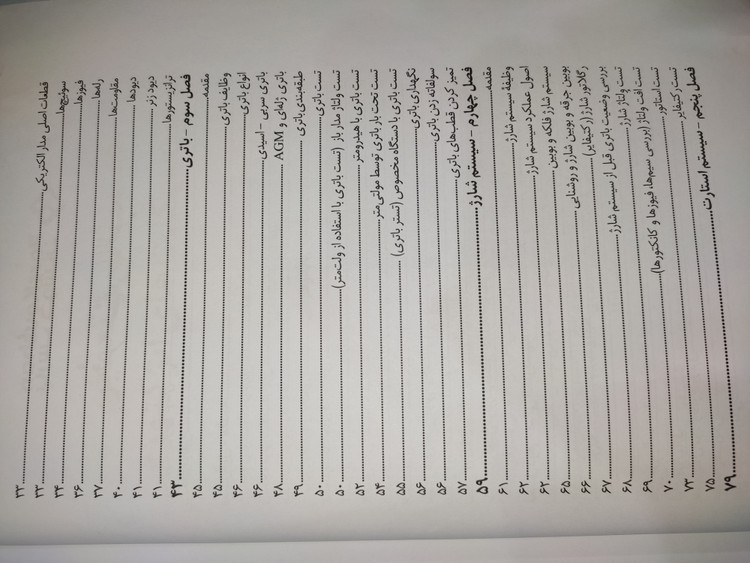 قطعات اصلی مدار الکتریکی ۳۳
سوئیچ‌ها ۳۳
فیوزها ۳۴
رله‌ها ۳۶
مقاومت‌ها ۳۷
دیودها ۴۰
دیود زنر ۴۱
ترانزیستورها ۴۱
فصل سوم – باتری ۴۳
مقدمه ۴۵
وظایف باتری ۴۵
انواع باتری ۴۶
باتری سربی – اسیدی ۴۶
باتری ژله‌ای و AGM ۴۸
طبقه‌بندی باتری ۴۹
تست باتری ۵۰
تست ولتاژ مدار باز (تست باتری با استفاده از ولت‌متر) ۵۰
تست باتری با هیدرومتر ۵۲
تست تحت بار باتری توسط مولتی‌متر ۵۴
تست باتری با دستگاه مخصوص (تستر باتری) ۵۵
نگهداری باتری ۵۶
سولفاته زدن باتری ۵۶
تمیز کردن قطب‌های باتری ۵۷
فصل چهارم – سیستم شارژ ۵۹
مقدمه ۶۱
وظیفهٔ سیستم شارژ ۶۲
اصول عملکرد سیستم شارژ ۶۲
سیستم شارژ فلکه و بوبین ۶۵
بوبین جرقه و بوبین شارژ و روشنایی ۶۶
رگلاتور شارژ (رکتیفایر) ۶۷
بررسی وضعیت باتری قبل از سیستم شارژ ۶۸
تست ولتاژ شارژ ۶۹
تست افت ولتاژ (بررسی سیم‌ها، فیوزها و کانکتورها) ۷۰
تست استاتور ۷۳
تست رکتیفایر ۷۵
فصل پنجم – سیستم استارت ۷۹